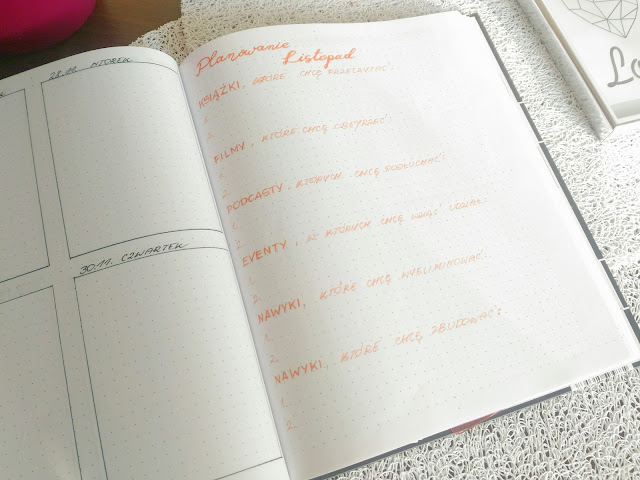 28.11. WTOREK
30.11. CZWARTEK
Planowanie
Listopad
KSIĄŻKI, KTÓRE CHCĘ PRZECZYTAĆ:
1.
2.
FILMY, KTÓRE CHCĘ OBEJRZEĆ:
1.
2.
PODCASTY, KTÓRYCH CHCĘ POSŁUCHAĆ:
1.
2.
EVENTY, W KTÓRYCH CHCĘ WZIĄĆ UDZIAŁ:
1.
2.
NAWYKI, KTÓRE CHCĘ WYELIMINOWAĆ:
1.
2.
NAWYKI, KTÓRE CHCĘ ZBUDOWAĆ:
1.
2.